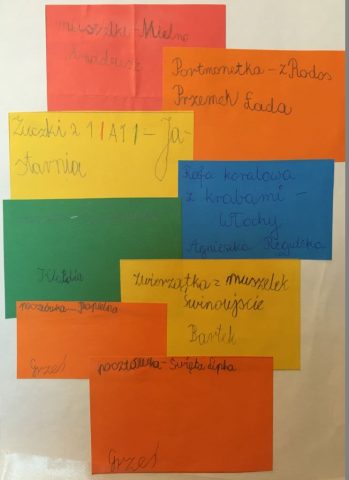 muszelki - Mielno
Portmonetka - z Rodos
Przemek Łada
Zuczki z 
Ja-
starnia
Rafa koralowa
z krabami -
Włochy
Agnieszka Regulska
Klaudia
Zwierzątka z muszelek
Świnoujście
Bartek
pocztówka -
Grześ
pocztówka - Święta Lipka
Grześ